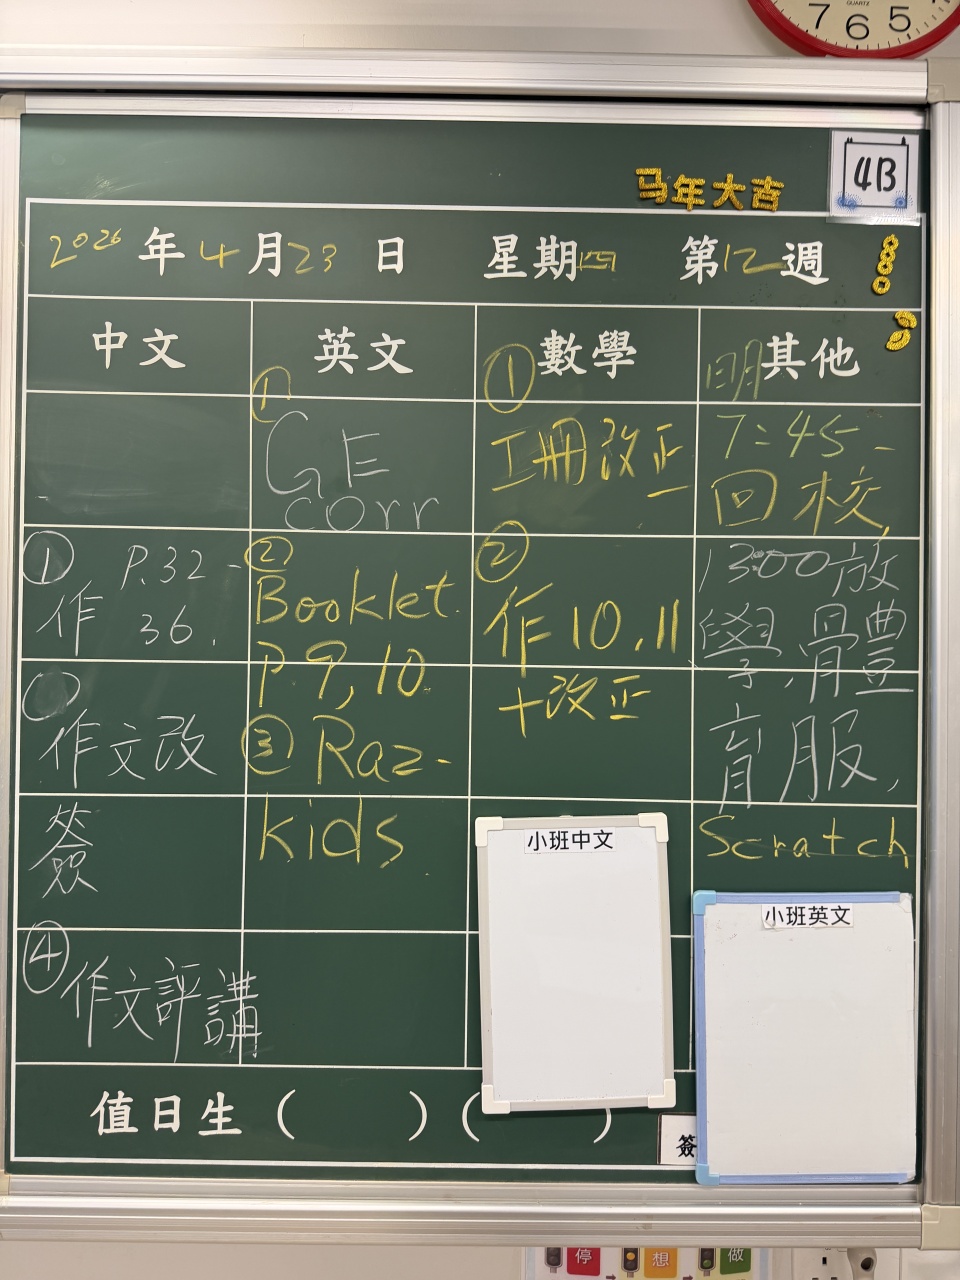 7 6 5
QUARTZ
4B
马年大吉
2026年4月23日 星期四 第12週
中文
英文
數學
明其他
① P.32-
作 36.
作文改
簽
④
作文評講
①
GE
corr
②
Booklet
P 9, 10
③ Raz-
kids
①
工冊改正
②
作10,11
+改正
7:45
回校,
13:00放
學,體
育服,
Scratch
小班中文
小班英文
值日生 ( ) ( )
簽
停
想
做